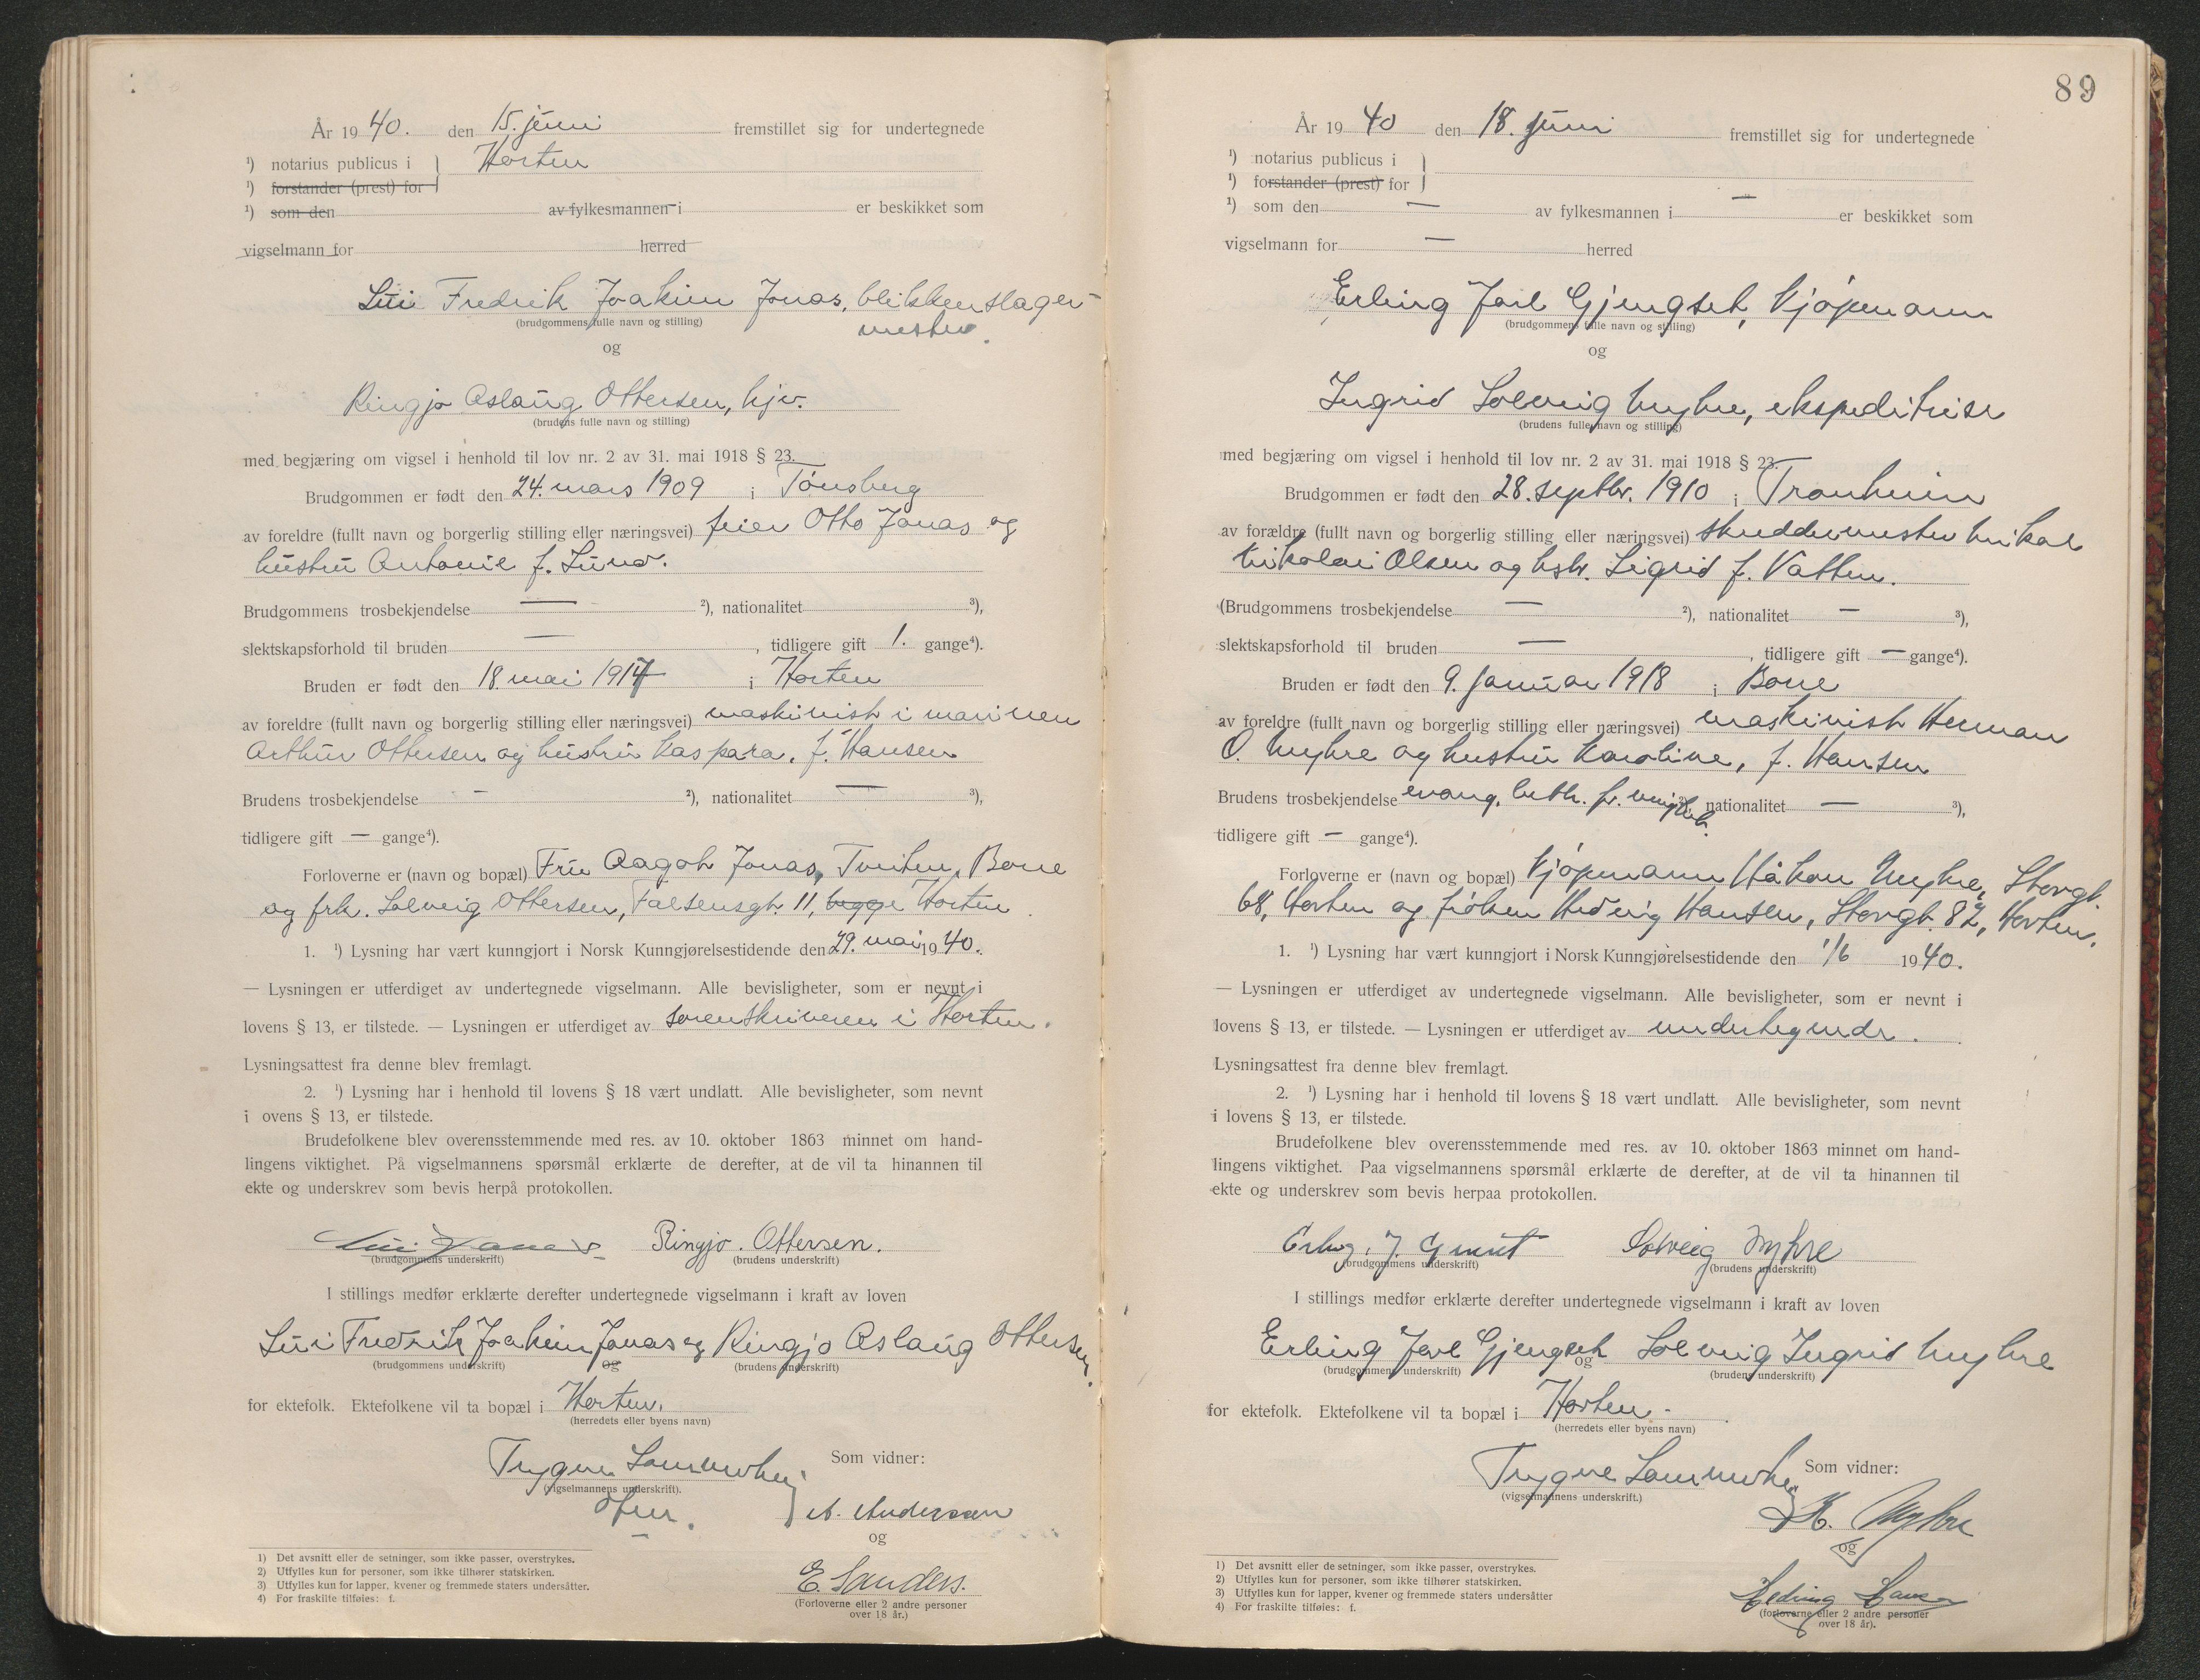 År 1940. den 15. juni fremstillet sig for undertegnede
¹) notarius publicus i Horten
¹) forstander (prest) for
¹) som den av fylkesmannen i er beskikket som
vigselmann for herred
Lui Fredrik Joakim Jonas, blikkenslager-
mester.
(brudgommens fulle navn og stilling)
og
Ringjo Aslaug Ottersen, hjv.
(brudens fulle navn og stilling)
med begjæring om vigsel i henhold til lov nr. 2 av 31. mai 1918 § 23.
Brudgommen er født den 24. mars 1909 i Tønsberg
av foreldre (fullt navn og borgerlig stilling eller næringsvei) feier Otto Jonas og
hustru Antonie f. Lund.
Brudgommens trosbekjendelse — ²), nationalitet ³),
slektskapsforhold til bruden — , tidligere gift 1. gange⁴).
Bruden er født den 18. mai 1917 i Horten
av foreldre (fullt navn og borgerlig stilling eller næringsvei) maskinist i marinen
Arthur Ottersen og hustru Kaspara, f. Hansen
Brudens trosbekjendelse - ²), nationalitet — ³),
tidligere gift — gange⁴).
Forloverne er (navn og bopæl) Fru Aagot Jonas, Tveiten, Borre
og frk. Solveig Ottersen, Falsensgt. 11, begge Horten
1. ¹) Lysning har vært kunngjort i Norsk Kunngjørelsestidende den 29. mai 1940.
— Lysningen er utferdiget av undertegnede vigselmann. Alle bevisligheter, som er nevnt i
lovens § 13, er tilstede. — Lysningen er utferdiget av sorenskriveren i Horten.
Lysningsattest fra denne blev fremlagt.
2. ¹) Lysning har i henhold til lovens § 18 vært undlatt. Alle bevisligheter, som nevnt
i ovens § 13, er tilstede.
Brudefolkene blev overensstemmende med res. av 10. oktober 1863 minnet om hand-
lingens viktighet. På vigselmannens spørsmål erklærte de derefter, at de vil ta hinannen til
ekte og underskrev som bevis herpå protokollen.
Lui Jonas Ringjo. Ottersen.
(brudgommens underskrift) (brudens underskrift)
I stillings medfør erklærte derefter undertegnede vigselmann i kraft av loven
Lui Fredrik Joakim Jonas og Ringjo Aslaug Ottersen.
(brudgommens underskrift) og (brudens underskrift)
for ektefolk. Ektefolkene vil ta bopæl i Horten.
(herredets eller byens navn)
Trygve Som vidner:
(vigselmannens underskrift).
A. Andersen
og
E. Sanders.
(Forloverne eller 2 andre personer
over 18 år.)
1) Det avsnitt eller de setninger, som ikke passer, overstrykes.
2) Utfylles kun for personer, som ikke tilhører statskirken.
3) Utfylles kun for lapper, kvener og fremmede staters undersåtter.
4) For fraskilte tilføies: f.
89
År 1940 den 18. juni fremstillet sig for undertegnede
¹) notarius publicus i
¹) forstander (prest) for
¹) som den — av fylkesmannen i — er beskikket som
vigselmann for — herred
Erling Jarl Gjengset, kjøpmann
(brudgommens fulle navn og stilling)
og
Ingrid Solveig Myhre, ekspeditrise
(brudens fulle navn og stilling)
med begjæring om vigsel i henhold til lov nr. 2 av 31. mai 1918 § 23.
Brudgommen er født den 28. septbr. 1910 i Tronheim
av forældre (fullt navn og borgerlig stilling eller næringsvei) skreddermester Mikal
Nikolai Olsen og hstr. Sigrid f. Vatten.
(Brudgommens trosbekjendelse — ²), nationalitet — ³),
slektskapsforhold til bruden — , tidligere gift — gange⁴).
Bruden er født den 9. januar 1918 i Borre
av foreldre (fullt navn og borgerlig stilling eller næringsvei) maskinist Herman
O. Myhre og hustru Karoline, f. Hansen
Brudens trosbekjendelse evang. luth. fr. menighet nationalitet — ³),
tidligere gift — gange⁴).
Forloverne er (navn og bopæl) kjøpmann Håkon Myhre, Storgt.
68, Horten og frøken Hedvig Hansen, Storgt. 82, Horten.
1. ¹) Lysning har vært kunngjort i Norsk Kunngjørelsestidende den 1/6 1940.
— Lysningen er utferdiget av undertegnede vigselmann. Alle bevisligheter, som er nevnt i
lovens § 13, er tilstede. — Lysningen er utferdiget av undertegnede.
Lysningsattest fra denne blev fremlagt.
2. ¹) Lysning har i henhold til lovens § 18 vært undlatt. Alle bevisligheter, som nevnt
i lovens § 13, er tilstede.
Brudefolkene blev overensstemmende med res. av 10. oktober 1863 minnet om hand-
lingens viktighet. Paa vigselmannens spørsmål erklærte de derefter, at de vil ta hinannen til
ekte og underskrev som bevis herpaa protokollen.
Erling. J. Solveig Myhre
(brudgommens underskrift) (brudens underskrift)
I stillings medfør erklærte derefter undertegnede vigselmann i kraft av loven
Erling Jarl Gjengset og Solveig Ingrid Myhre
(brudgommens underskrift) (brudens underskrift)
for ektefolk. Ektefolkene vil ta bopæl i Horten.
(herredets eller byens navn)
Trygve Som vidner:
(vigselmannens underskrift.)
H. Myhre
og
Hedvig Hansen
(forloverne eller 2 andre personer
over 18 år).
1) Det avsnitt eller de setninger, som ikke passer, overstrykes.
2) Utfylles kun for personer, som ikke tilhører statskirken.
3) Utfylles kun for lapper, kvener og fremmede staters undersåtter
4) For fraskilte tilføies: f.